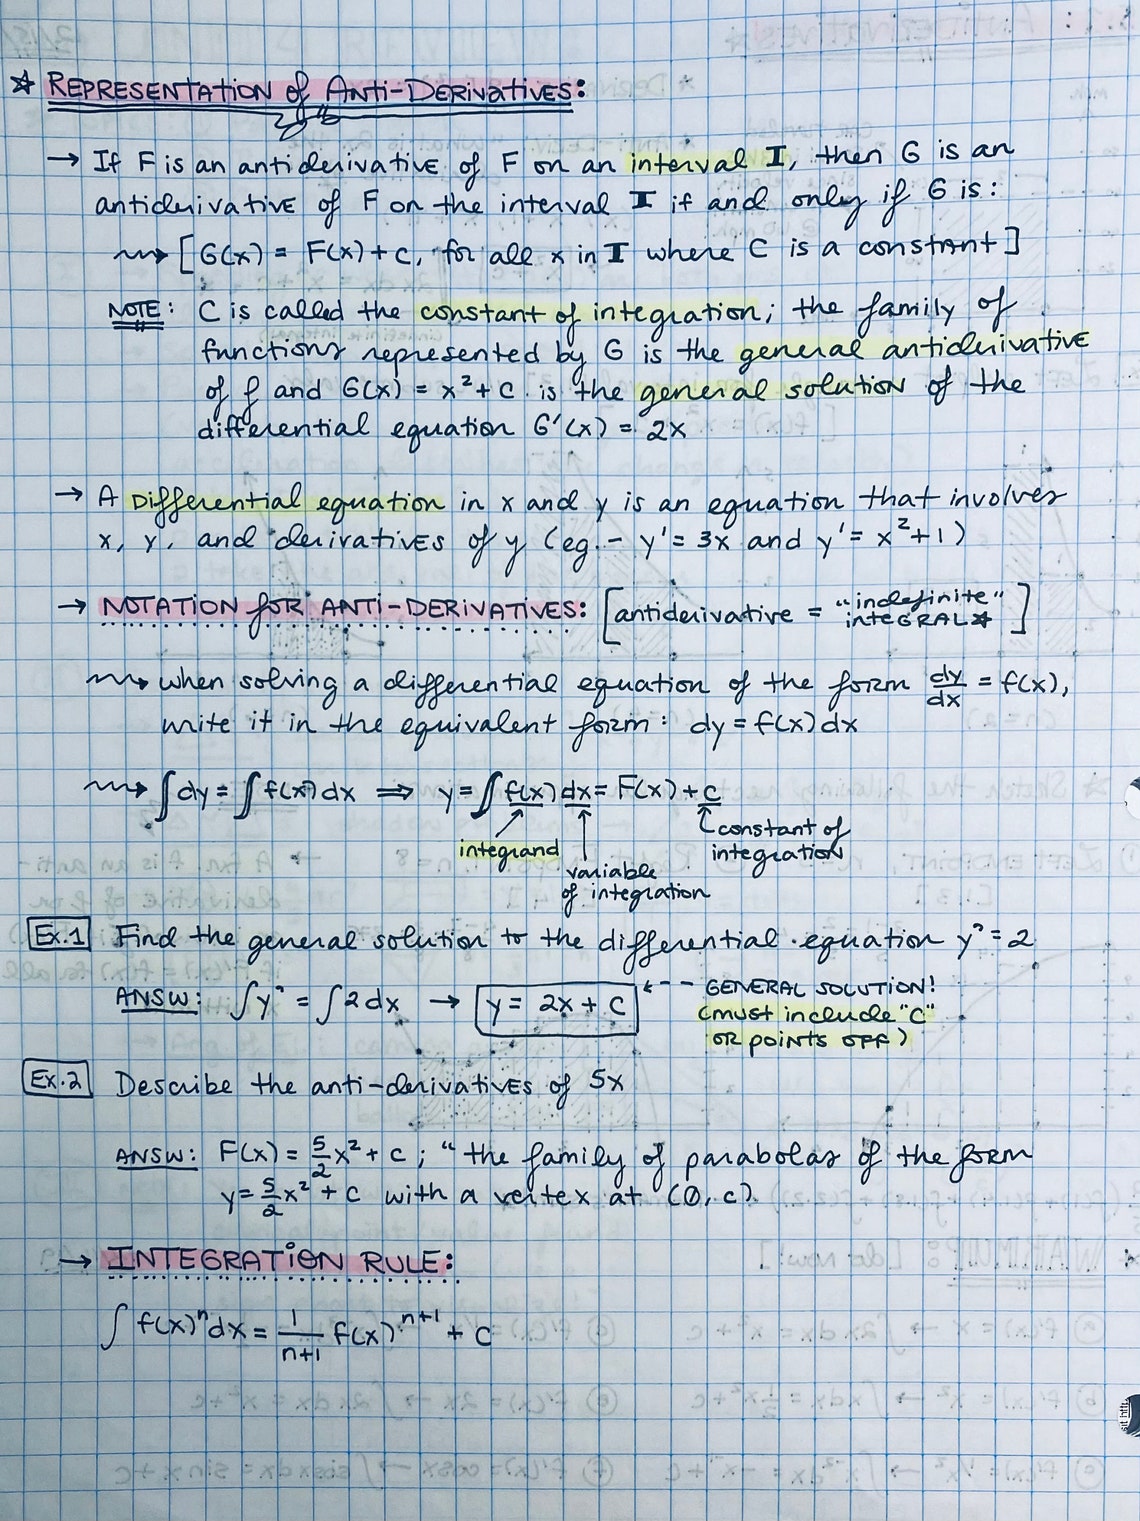 ☆ REPRESENTATION of ANTI-DERIVATIVES:
→ If F is an antiderivative of F on an interval I, then G is an
antiderivative of F on the interval I if and only if G is:
[G(x) = F(x) + C, for all x in I where C is a constant]
NOTE: C is called the constant of integration; the family of
functions represented by G is the general antiderivative
of f and G(x) = x² + C is the general solution of the
differential equation G'(x) = 2x
→ A Differential equation in x and y is an equation that involves
x, y, and derivatives of y (eg.- y' = 3x and y' = x² + 1)
→ NOTATION for ANTI-DERIVATIVES: [antiderivative = "indefinite" INTEGRAL☆]
when solving a differential equation of the form dy/dx = f(x),
write it in the equivalent form: dy = f(x) dx
∫dy = ∫f(x) dx ⇒ y = ∫f(x) dx = F(x) + C
integrand
variable of integration
constant of integration
Ex.1 Find the general solution to the differential equation y' = 2
ANSW: ∫y' = ∫2dx → y = 2x + C
GENERAL SOLUTION!
(must include "C"
OR points OFF)
Ex.2 Describe the anti-derivatives of 5x
ANSW: F(x) = 5/2 x² + C; "the family of parabolas of the form
y = 5/2 x² + C with a vertex at (0, c)
→ INTEGRATION RULE:
∫ f(x)ⁿ dx = 1/(n+1) f(x)ⁿ⁺¹ + C